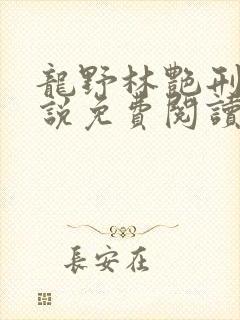 龍野林艷刑
說免費閱讀
長安在